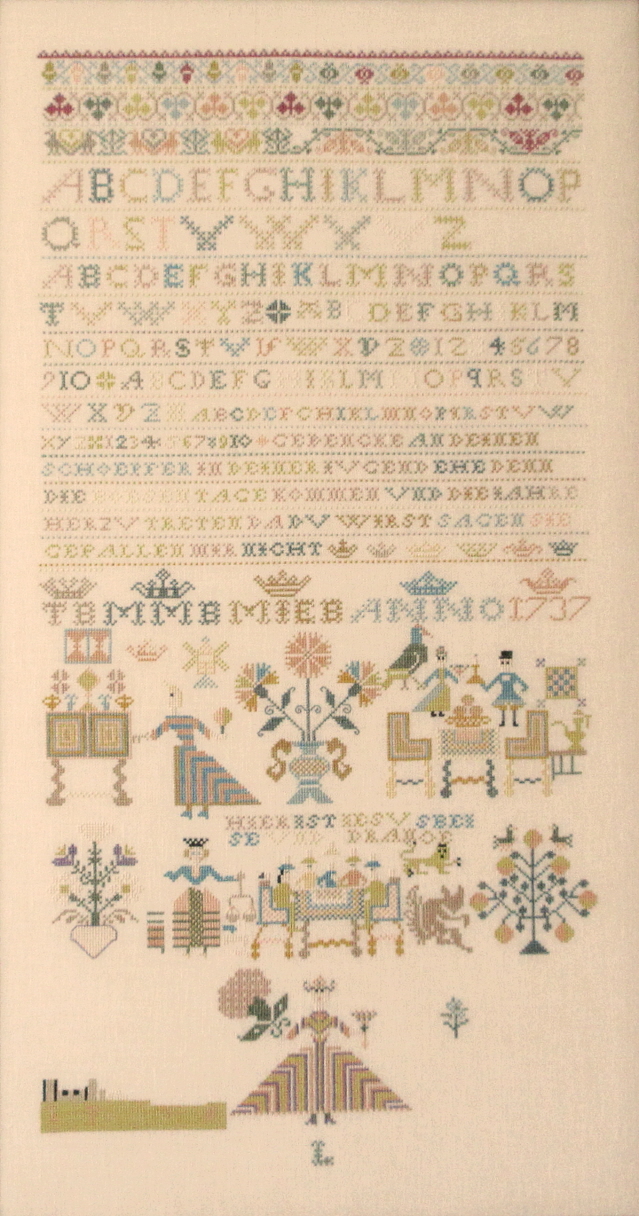 ABCDEFGHIKLMNOP
QRSTVWXYZ
ABCDEFGHIKLMNOPQRS
TVWXYZ AB CDEFGH IKLM
NOPQRSTVVWXYZ 12 45678
910 ABCDEFGHIKLMNOPQRSTV
WXYZ ABCDEFGHIKLMNOPQRSTVW
XYZ 12345678910 GEDENCKE AN DEINEN
SCHOEPFER IN DEINER IVGEND EHE DENN
DIE BOESEN TAGE KOMMEN VND DIE IAHRE
HERZV TRETEN DA DV WIRST SAGEN SIE
GEFALLEN MIR NICHT
TB MMB MIEB ANNO 1737
HIER IST IESV SBEI
SE VND DRANCE
L